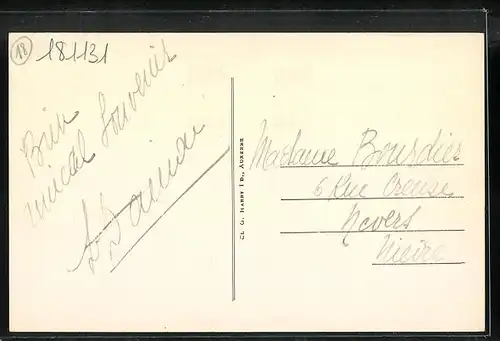 18
181131
Bien
amical Souvenir
CL. G. HARDY I D., AUXERRE
Madame Bourdier
6 Rue Creuse
Nevers
Nièvre